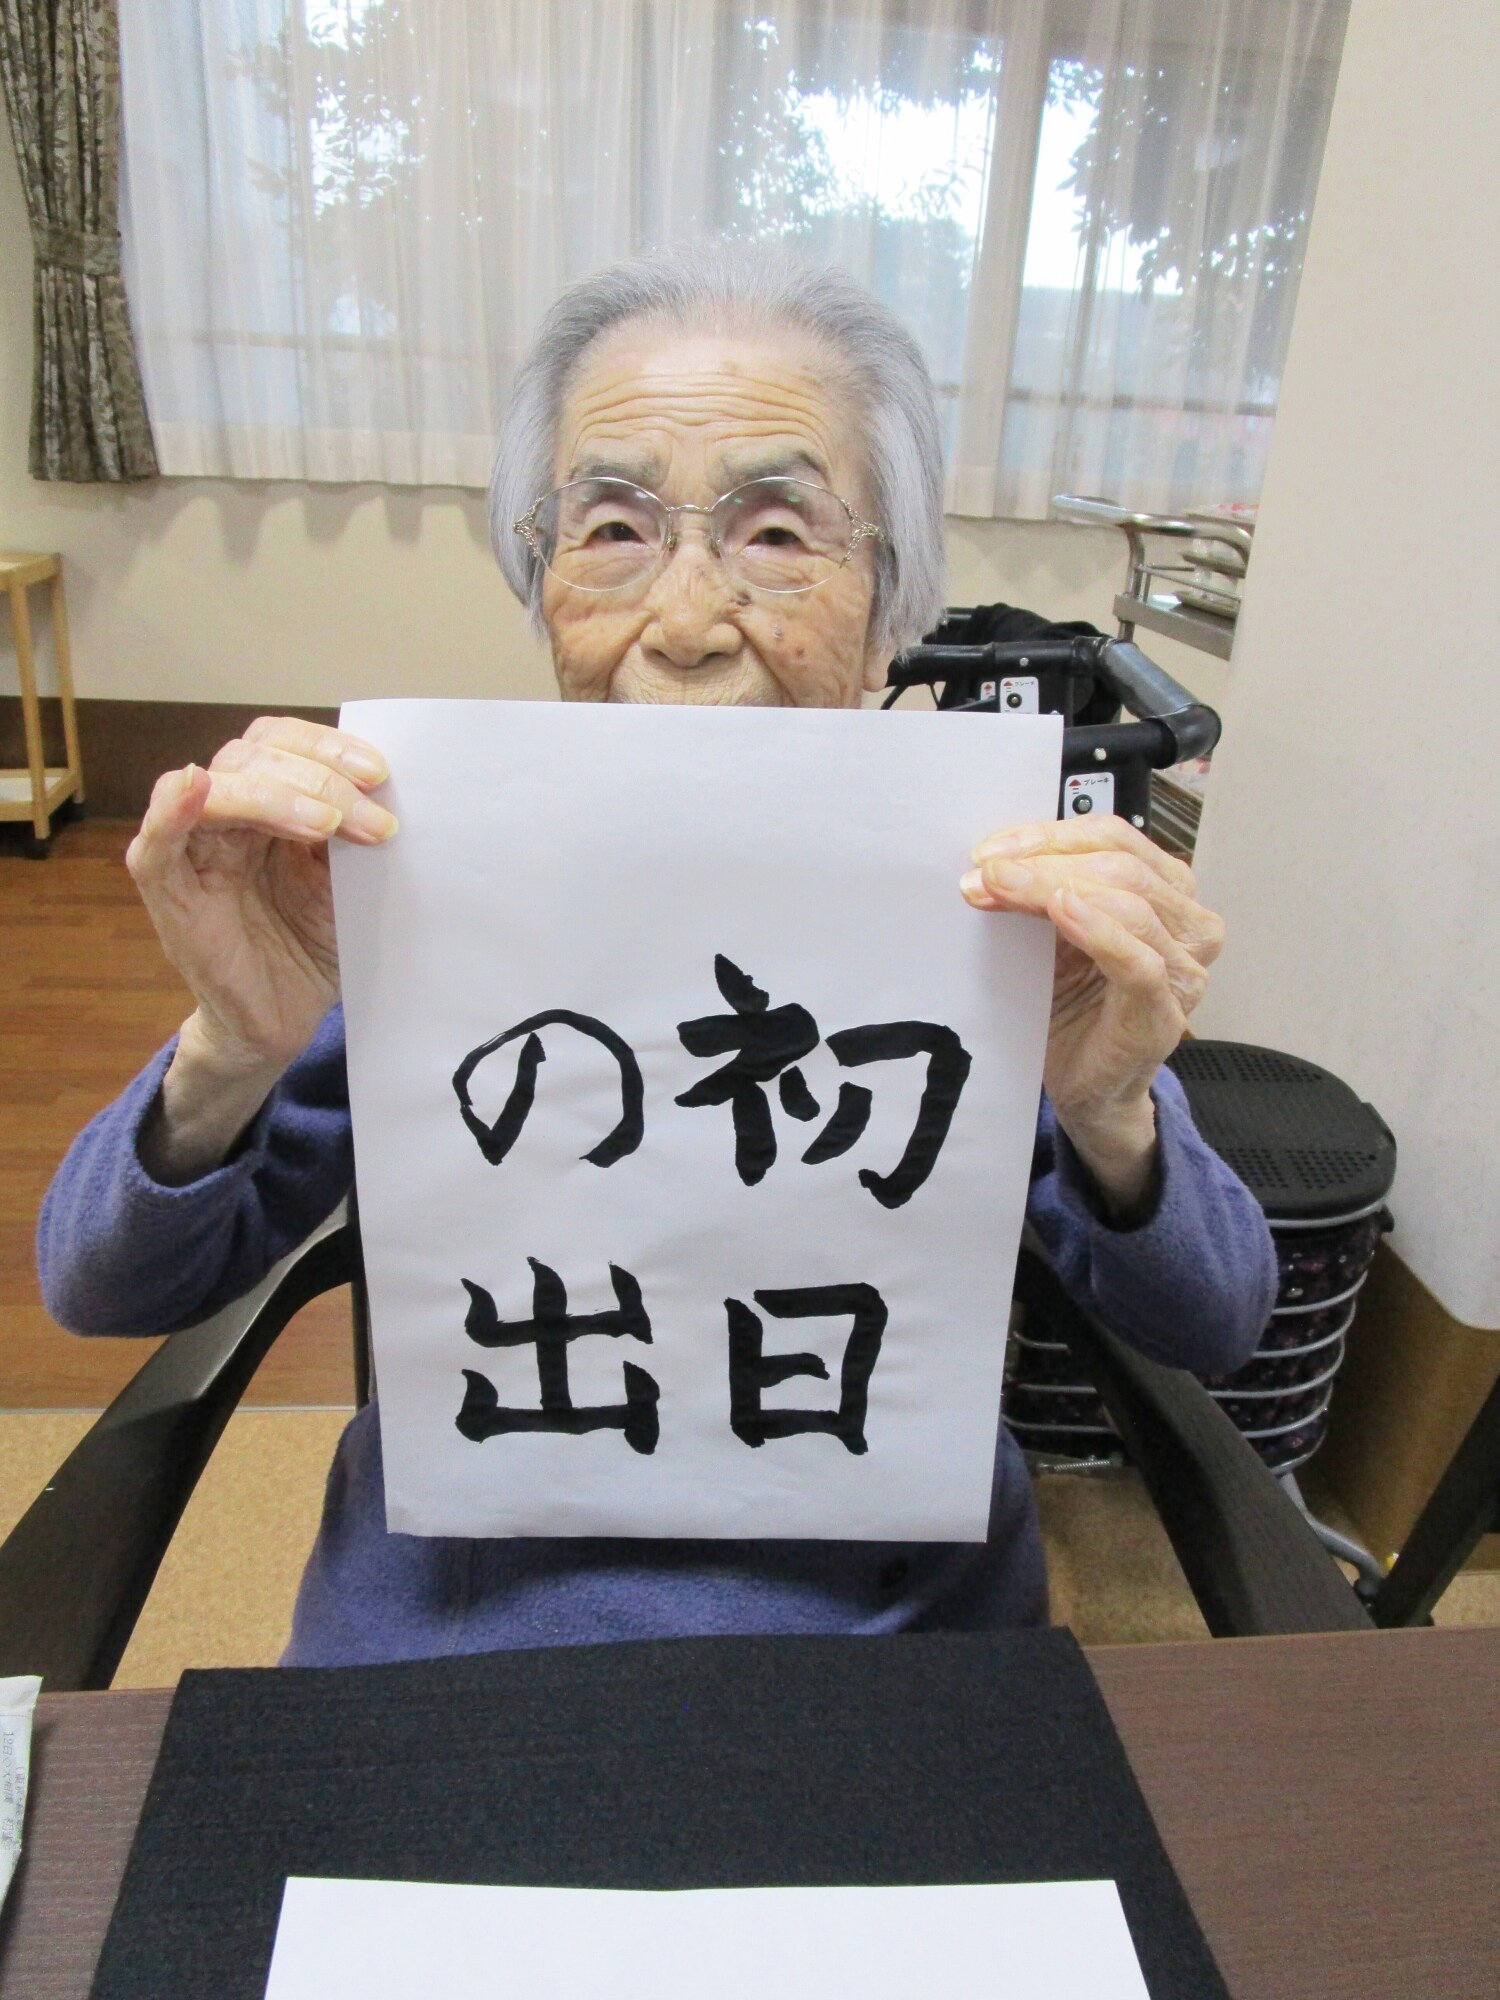 初日
の出
ブレーキ
ブレーキ